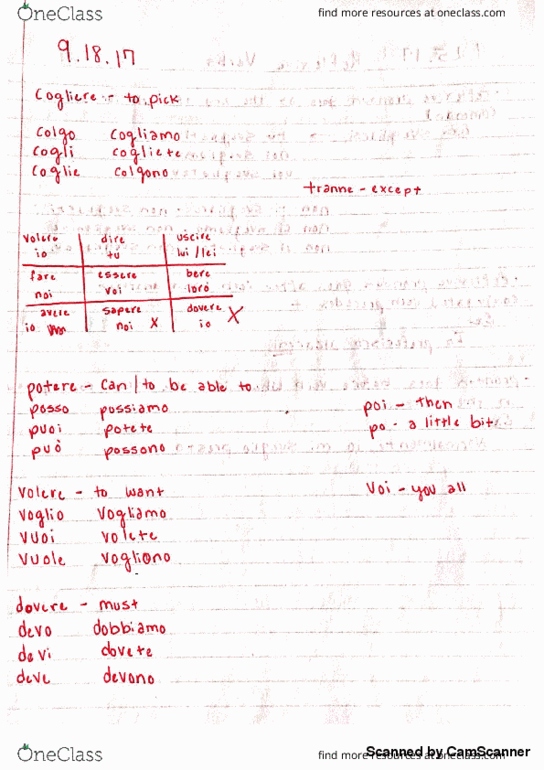 OneClass find more resources at oneclass.com
9.18.17
Cogliere - to pick
Colgo Cogliamo
Cogli cogliete
Coglie Colgono
tranne - except
volere dire uscire
io tu lui/lei
fare essere bere
noi voi loro
avere sapere dovere
io noi X io X
potere - Can/to be able to
posso possiamo poi - then
puoi potete po - a little bit
può possono
Volere - to want Voi - you all
Voglio Vogliamo
Vuoi volete
Vuole Vogliono
dovere - must
devo dobbiamo
devi dovete
deve devono
OneClass find more resources at oneclass.com
Scanned by CamScanner